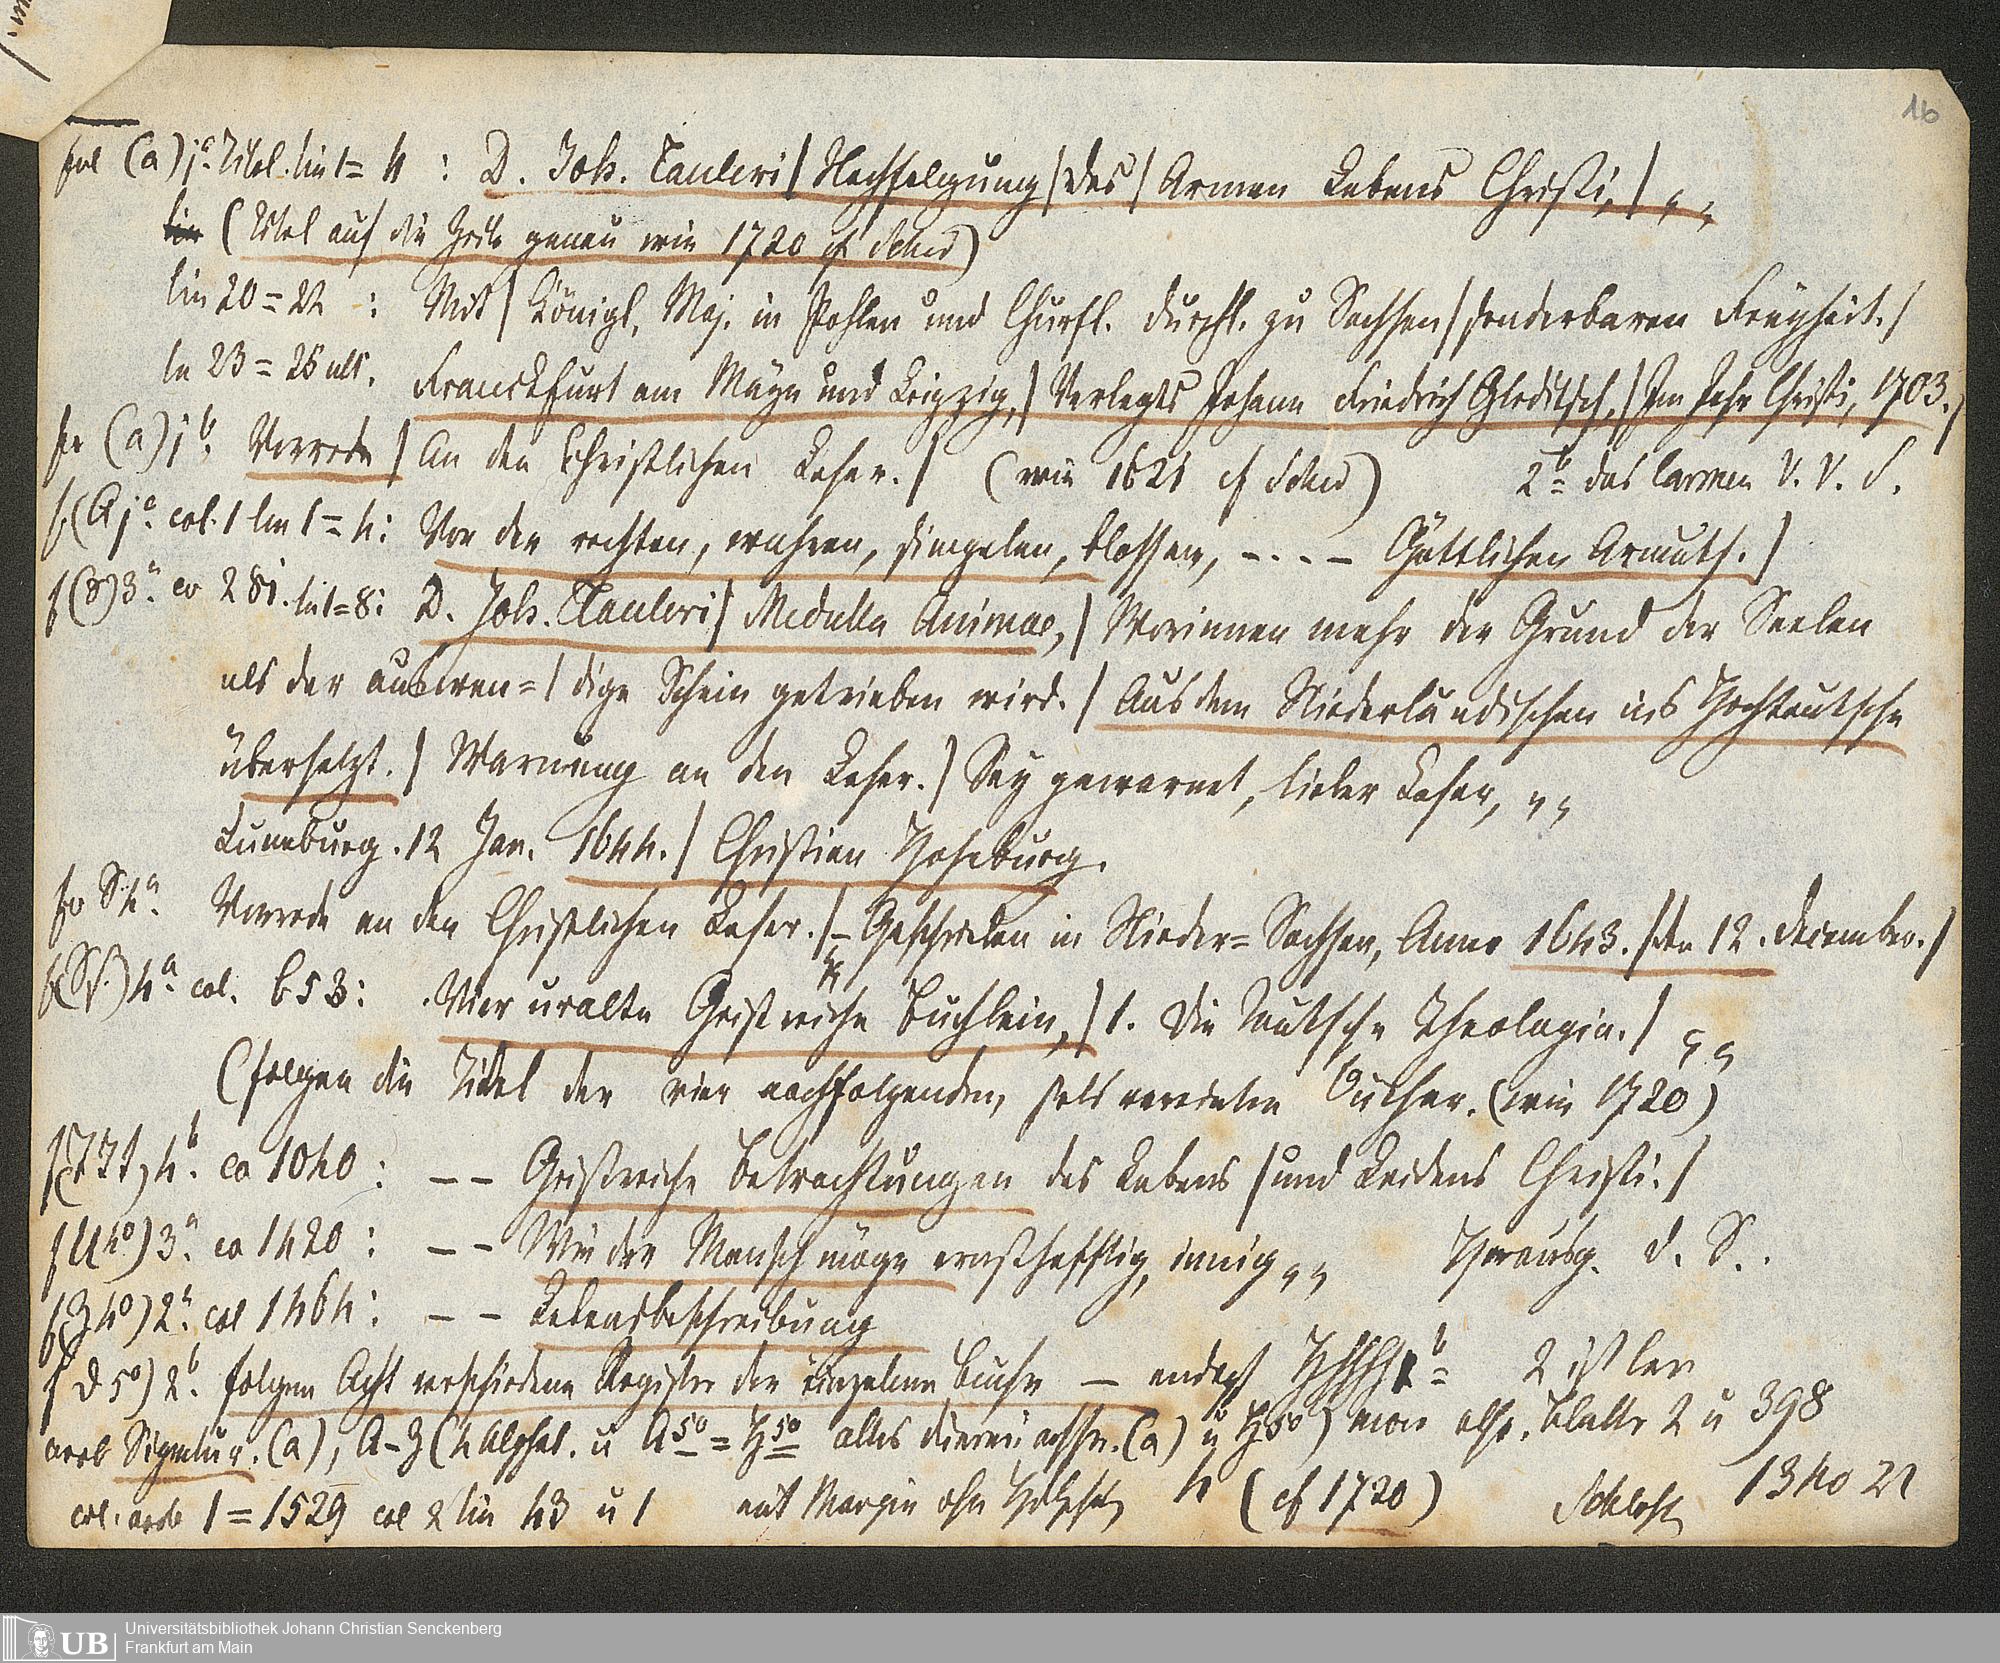 16
fol (a) j a. Titel. lin 1 = 4 : D. Joh. Tauleri / Nachfolgung / des / Armen Lebens Christi, / „ „
(Titel auf die Zeile genau wie 1720 cf Schd)
lin 20 = 22 : Mit / Königl. Maj. in Pohlen und Churfl. Durchl. zu Sachsen / sonderbaren Freyheit. /
ln 23 = 25 ult. Franckfurt am Mäyn und Leipzig, / Verlegts Johann Friedrich Gleditsch, / Im Jahr Christi, 1703. /
fo (a) j b. Vorrede / An den Christlichen Leser. / (wie 1621 cf Schd) 2 b = das Carmen V. V. S.
f. (A j a. col. 1 lin 1 = 4: Von der rechten, wahren, simpelen, blossen, - . . . - Göttlichen Armuth. /
f (S) 3 a. co 281. lin 1 = 8: D. Joh. Tauleri / Medulla Animae, / Worinnen mehr der Grund der Seelen
als der auswen = / dige Schein getrieben wird. / Aus dem Niederländischen ins Hochteutsche
übersetzt. / Warnung an den Leser. / Sey gewarnet, lieber Leser, „ „
Luneburg. 12 Jan. 1644. / Christian Hohburg.
fo S 4 a. Vorrede an den Christlichen Leser. / – Geschrieben in Nieder = Sachsen, Anno 1643. / den 12. December. /
4 a. col. 653: Vier uralte Geistreiche Buchlein, / 1. Die Teutsche Theologia. / „ „
(folgen die Titel der vier nachfolgenden, Bücher. (wie 1720)
4 b. co 1040 : – – Geistreiche Betrachtungen des Lebens / und Leidens Christi. /
3 a. co 1420 : – – Wie der Mensch möge ernsthafftig, innig „ „ Herausg. D. S..
2 a. col 1464 : – – Lebensbeschreibung
f D 5 o) 2 b. folgen Acht verschiedene Register der einzelnen Bücher – endest 2 ist leer
Signatur. (a), A – Z (4 Alphab. u A 5 o = H 5 o alles (a) u H 5 o) Blatt 2 u 398
col. 1 = 1529 col 2 lin 43 u 1 mit Margin 4 (cf 1720) 1340 22
Universitätsbibliothek Johann Christian Senckenberg
UB Frankfurt am Main